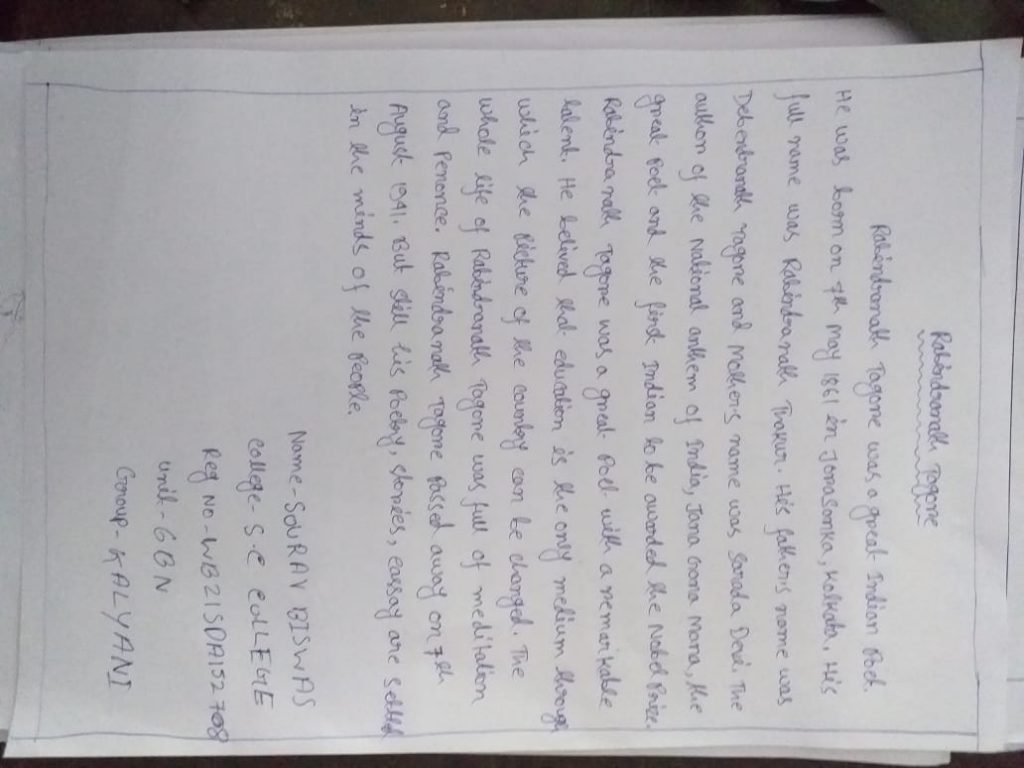 Rabindranath Tagore
Rabindranath Tagore was a great Indian Poet.
He was born on 7th May 1861 in Jorasanka, Kolkata. His
full name was Rabindranath Thakur. His fathers name was
Debenbranath Tagore and Mothers name was Sarada Devi. The
author of the National anthem of India, Jana Gana Mana, the
great Poet and the first Indian to be awarded the Nobel Prize.
Rabindranath Tagore was a great Poet with a remarkable
talent. He belived that education is the only medium through
which the Picture of the country can be changed. The
whole life of Rabindranath Tagore was full of meditation
and Penance. Rabindranath Tagore Passed away on 7th
August 1941. But still his Poetry, stories, essay are settled
in the minds of the People.
Name - SOURAV BISWAS
College - S C COLLEGE
Reg No - WB21SDA152708
Unit - 6BN
Group - KALYANI